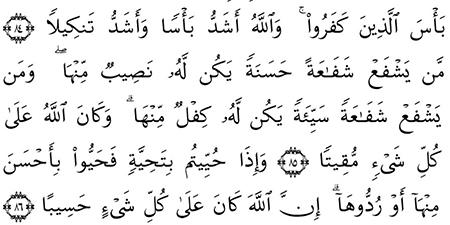 بَأْسَ ٱلَّذِينَ كَفَرُوا۟ ۚ وَٱللَّهُ أَشَدُّ بَأْسًا وَأَشَدُّ تَنكِيلًا ﴿٨٤﴾
مَّن يَشْفَعْ شَفَـٰعَةً حَسَنَةً يَكُن لَّهُۥ نَصِيبٌ مِّنْهَا ۖ وَمَن
يَشْفَعْ شَفَـٰعَةً سَيِّئَةً يَكُن لَّهُۥ كِفْلٌ مِّنْهَا ۗ وَكَانَ ٱللَّهُ عَلَىٰ
كُلِّ شَىْءٍ مُّقِيتًا ﴿٨٥﴾ وَإِذَا حُيِّيتُم بِتَحِيَّةٍ فَحَيُّوا۟ بِأَحْسَنَ
مِنْهَآ أَوْ رُدُّوهَآ ۗ إِنَّ ٱللَّهَ كَانَ عَلَىٰ كُلِّ شَىْءٍ حَسِيبًا ﴿٨٦﴾